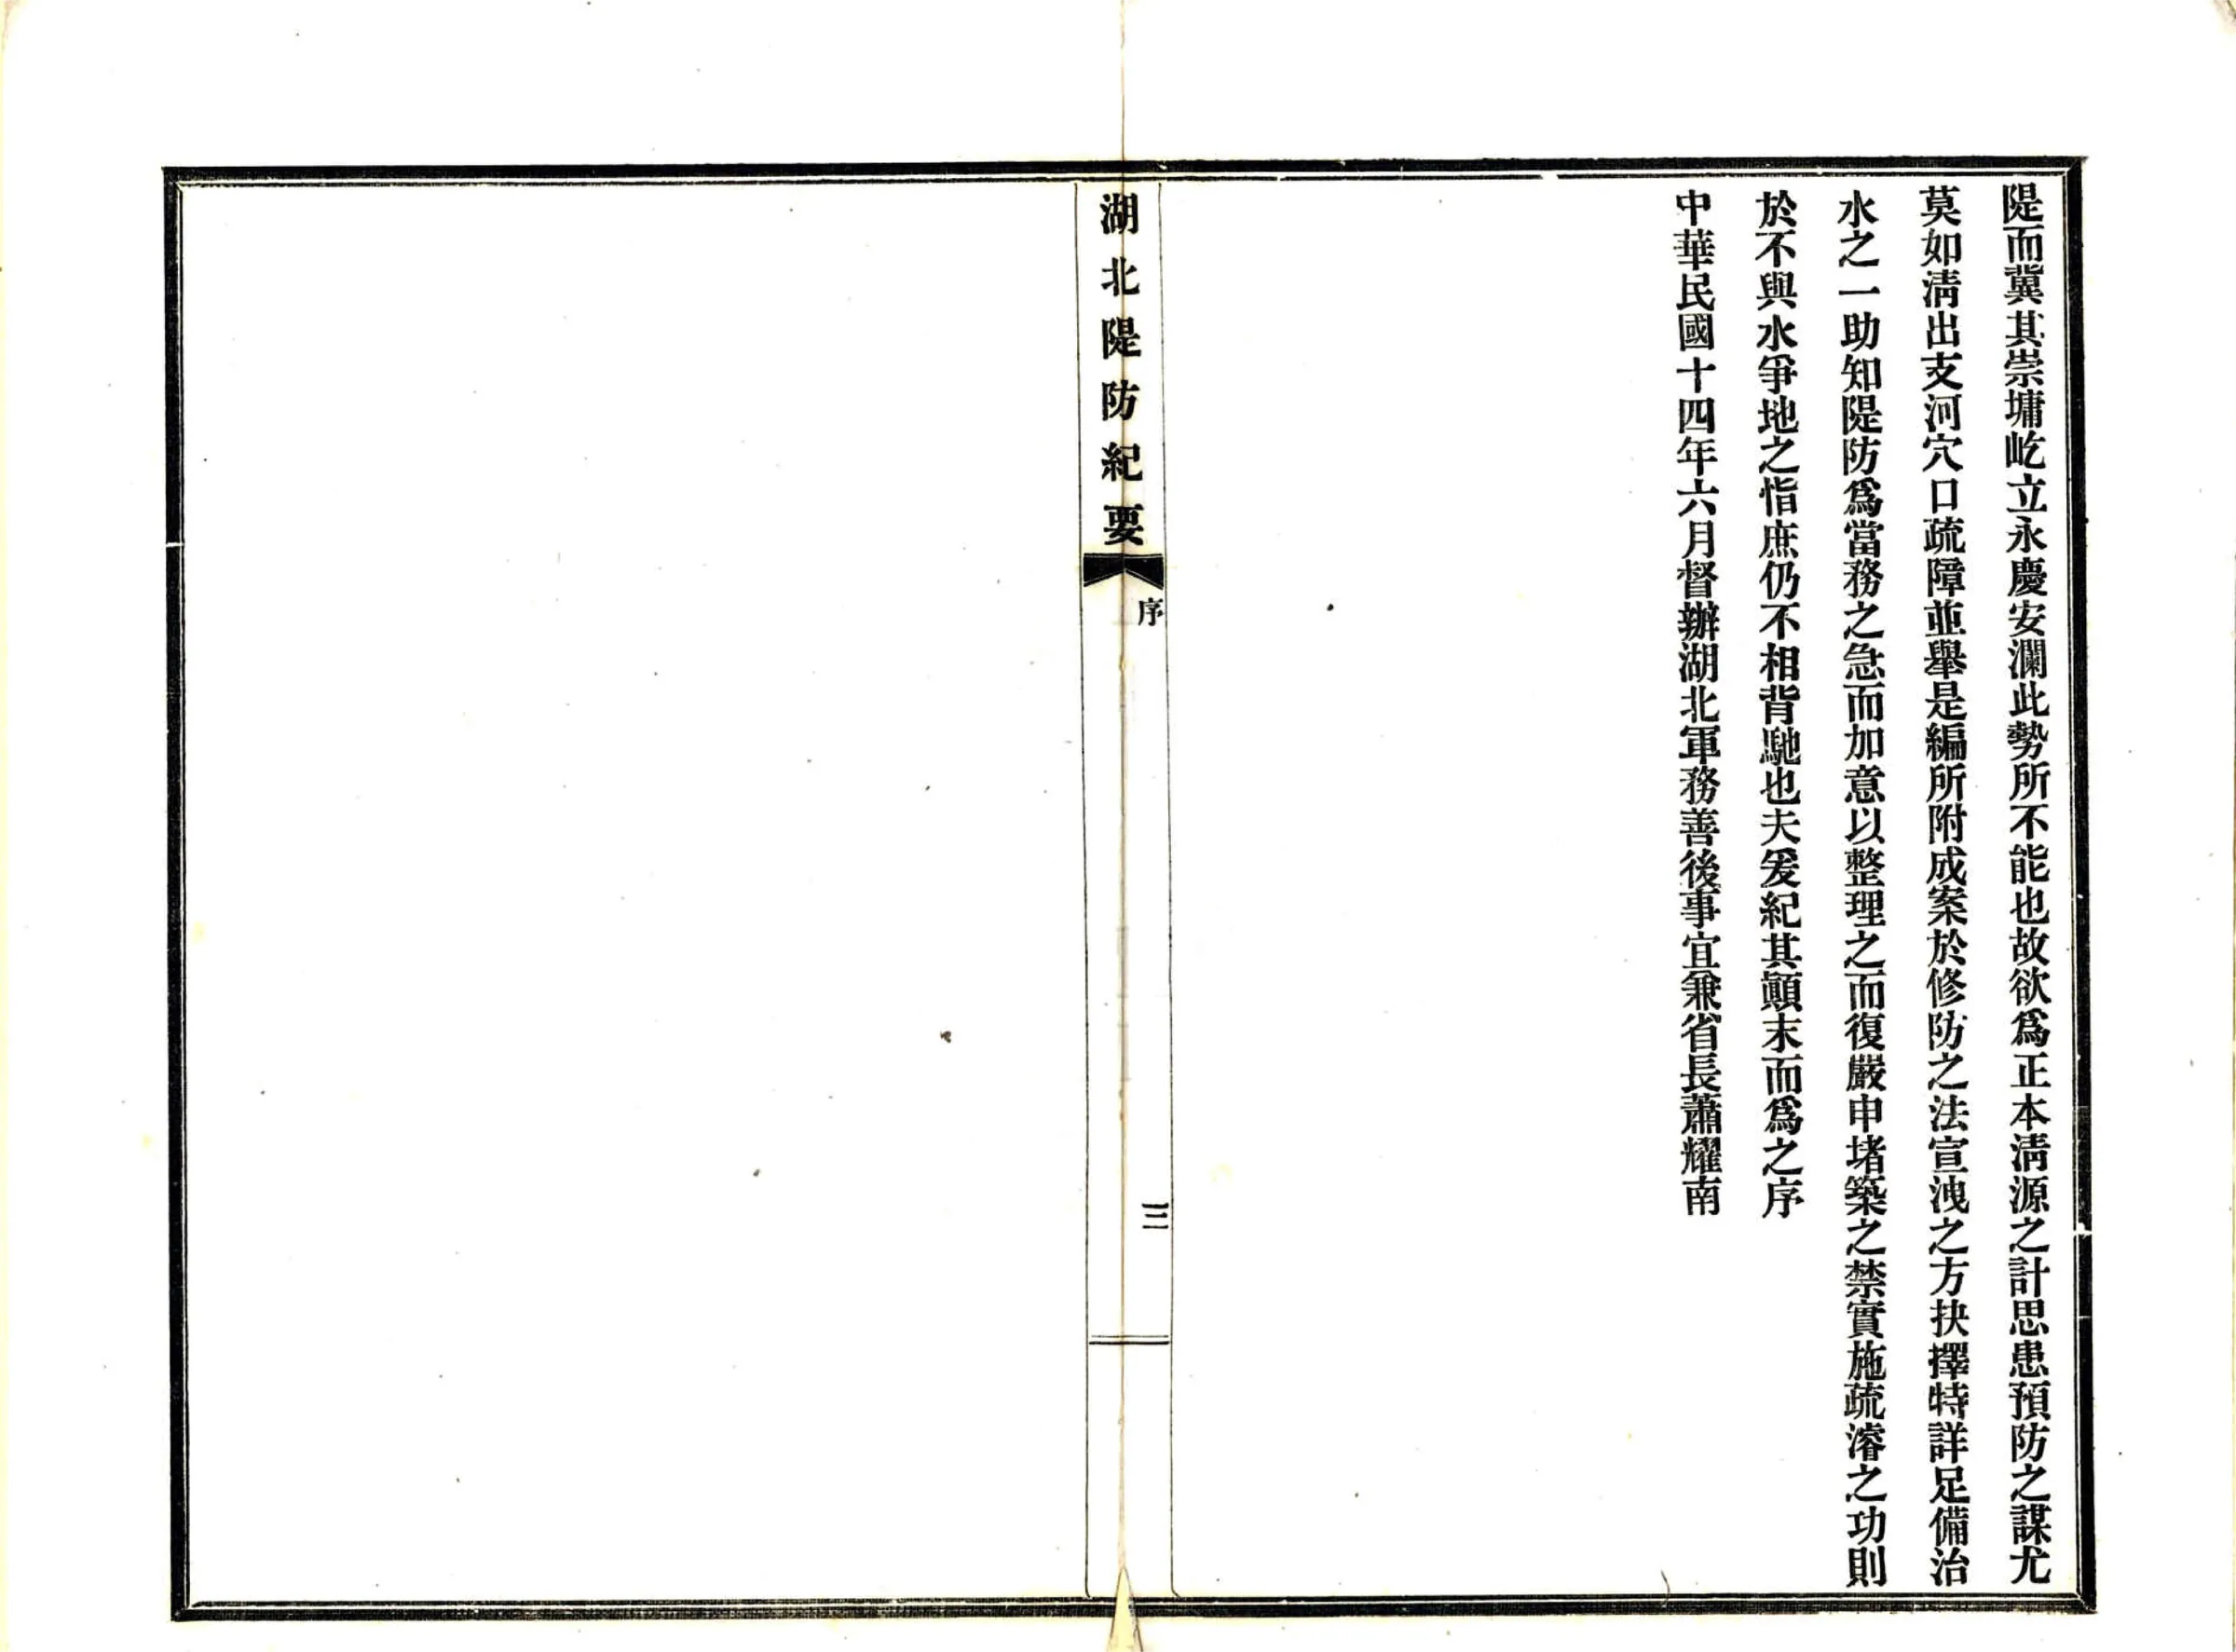 隄而冀其崇墉屹立永慶安瀾此勢所不能也故欲爲正本淸源之計思患預防之謀尤
莫如淸出支河穴口疏障並舉是編所附成案於修防之法宣洩之方抉擇特詳足備治
水之一助知隄防爲當務之急而加意以整理之而復嚴申堵築之禁實施疏濬之功則
於不與水爭地之恉庶仍不相背馳也夫爰紀其顚末而爲之序
中華民國十四年六月督辦湖北軍務善後事宜兼省長蕭耀南
湖北隄防紀要
序
三